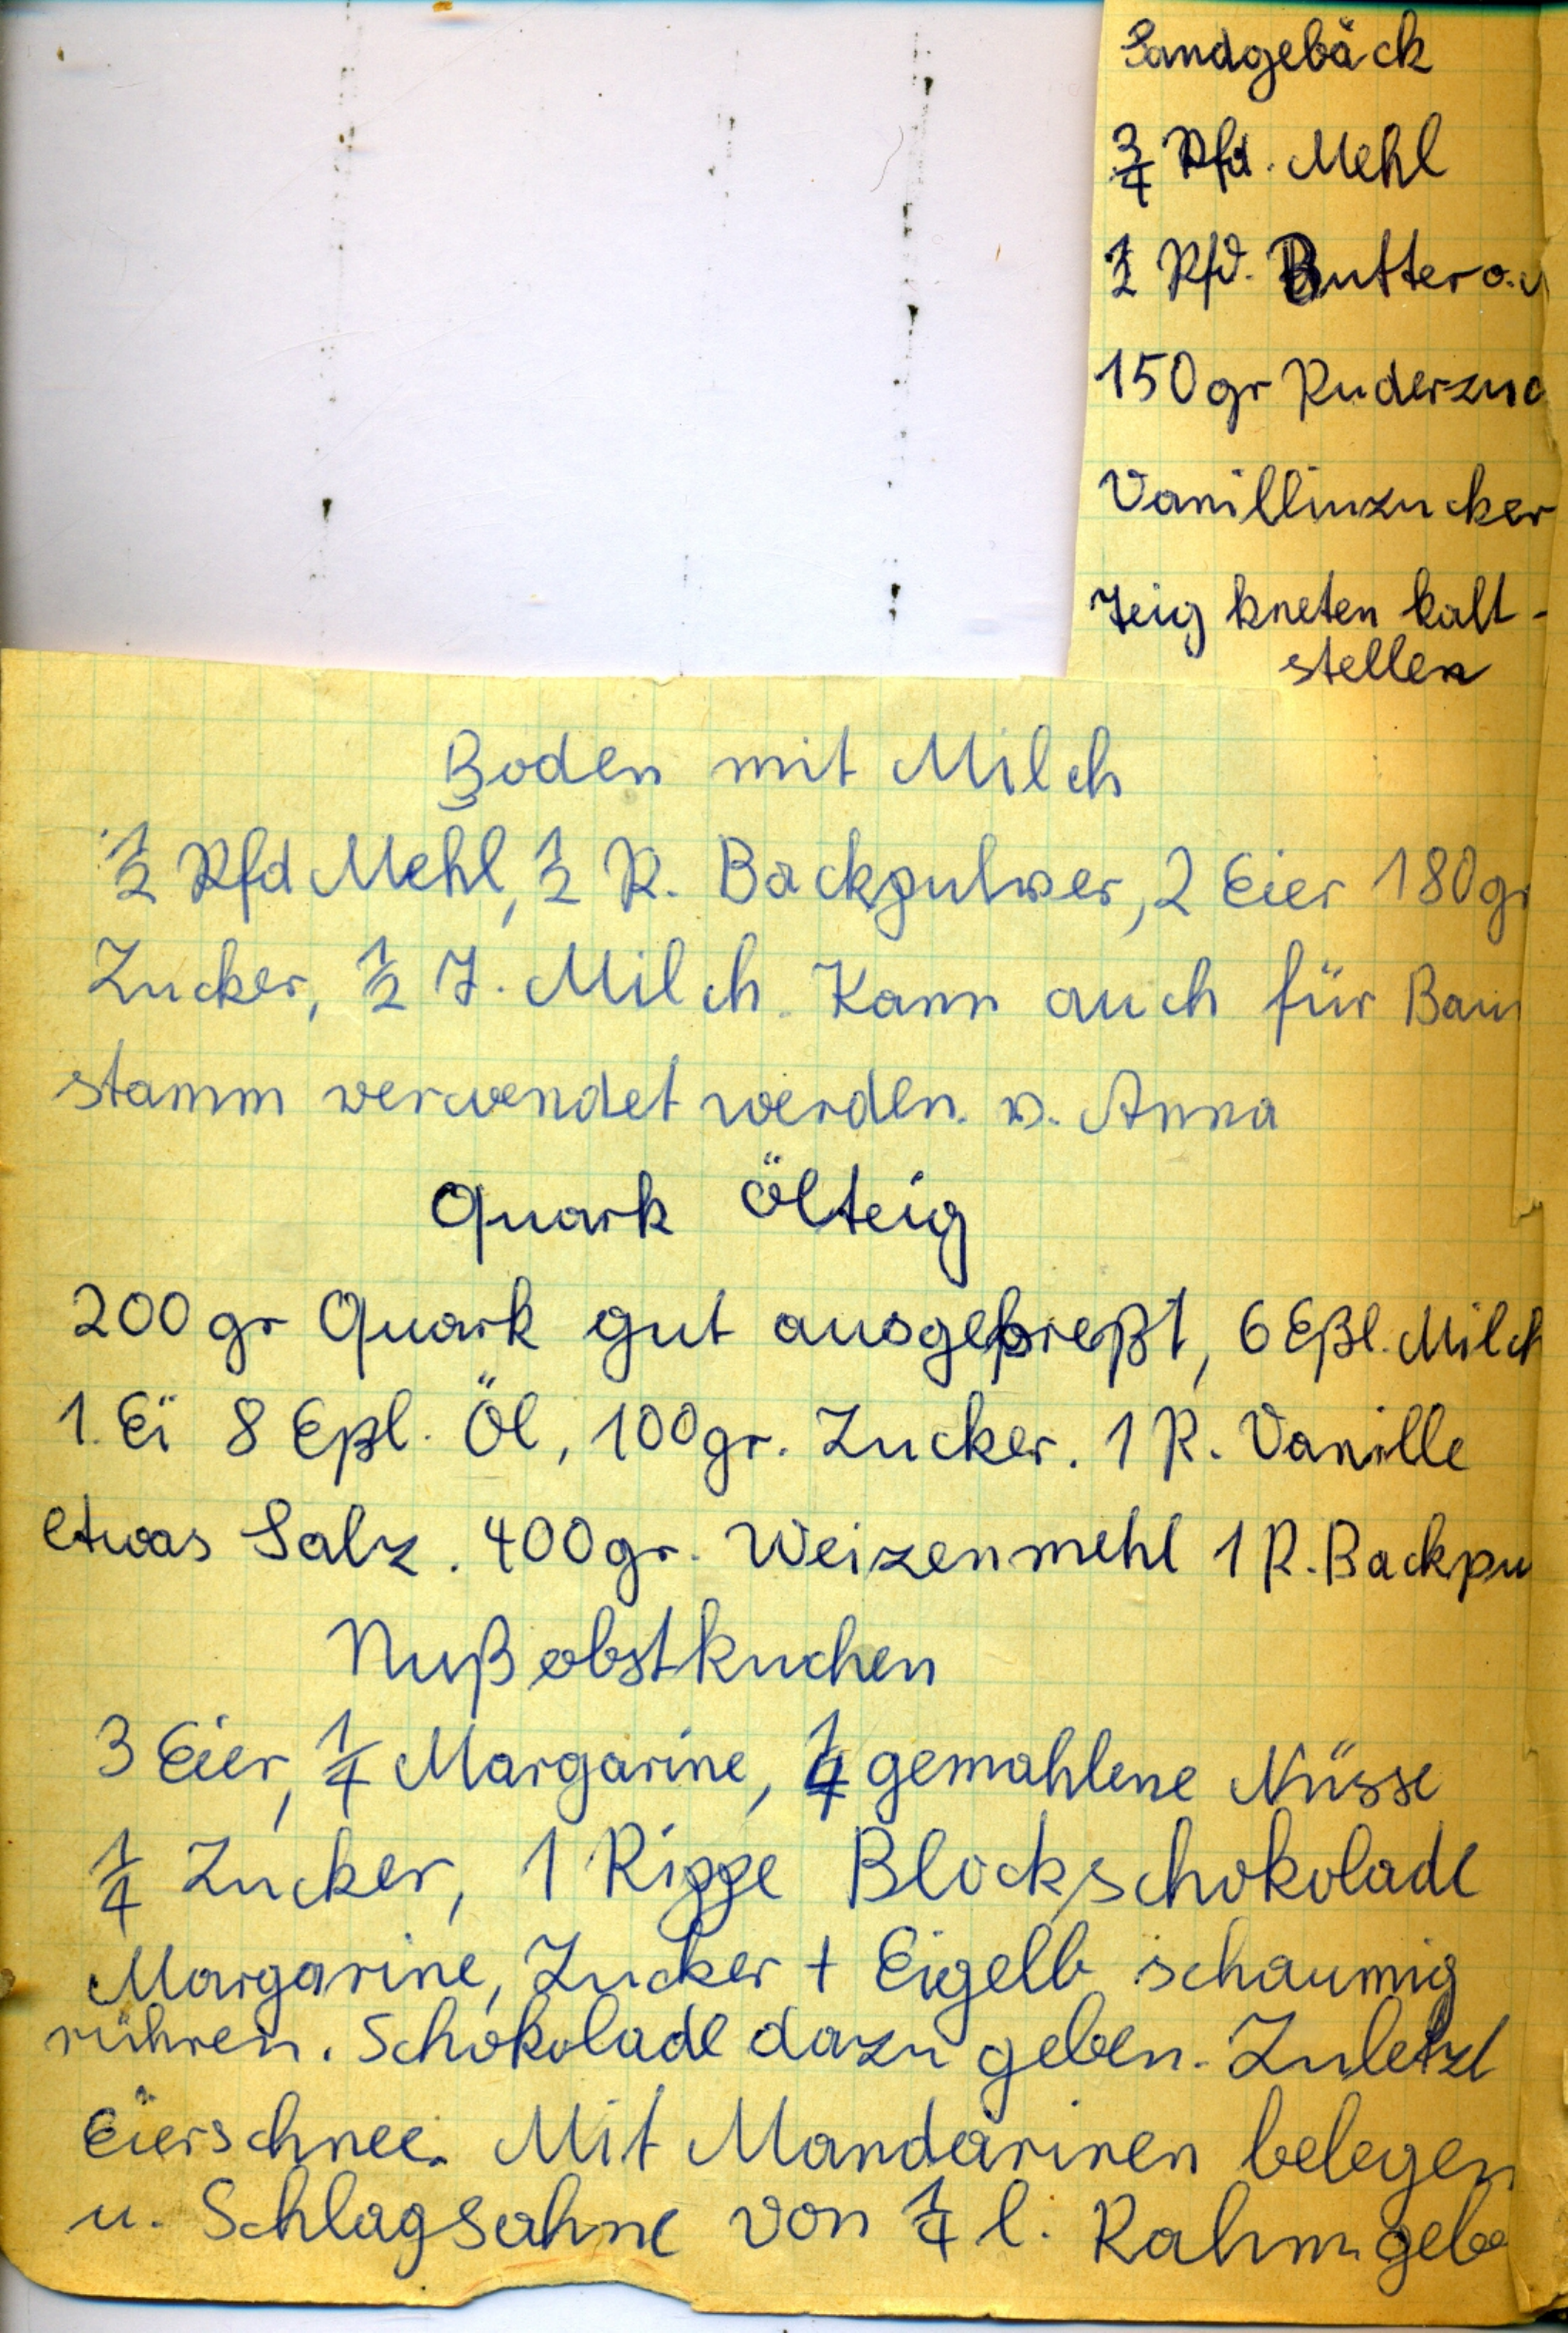 Sandgebäck
3/4 Pfd. Mehl
1/2 Pfd. Butter o.
150 gr Puderzuc
Vanillinzucker
Teig kneten kalt-
stellen
Boden mit Milch
1/2 Pfd Mehl, 1/2 P. Backpulver, 2 Eier 180 gr
Zucker, 1/2 T. Milch. Kann auch für Baum
stamm verwendet werden. v. Anna
Quark Ölteig
200 gr Quark gut ausgepreßt, 6 Eßl. Milch
1. Ei 8 Eßl. Öl, 100 gr. Zucker. 1 P. Vanille
etwas Salz. 400 gr. Weizenmehl 1 P. Backpu
Nußobstkuchen
3 Eier, 1/4 Margarine, 1/4 gemahlene Nüsse
1/4 Zucker, 1 Rippe Blockschokolade
Margarine, Zucker + Eigelb schaumig
rühren. Schokolade dazu geben. Zuletzt
Eierschnee. Mit Mandarinen belegen
u. Schlagsahne von 1/4 l. Rahm gebe